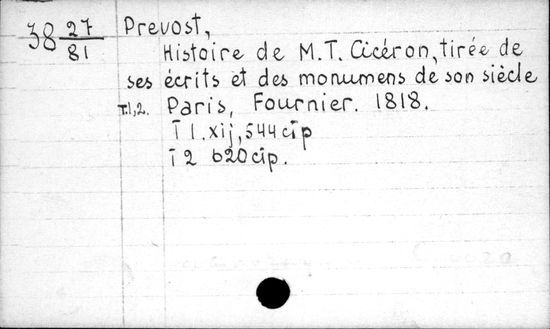 38 27/81
Prevost,
Histoire de M.T. Cicéron, tirée de
ses écrits et des monumens de son siècle
T.1,2. Paris, Fournier. 1818.
T 1. xij, 544 cîp
T 2 620 cîp.